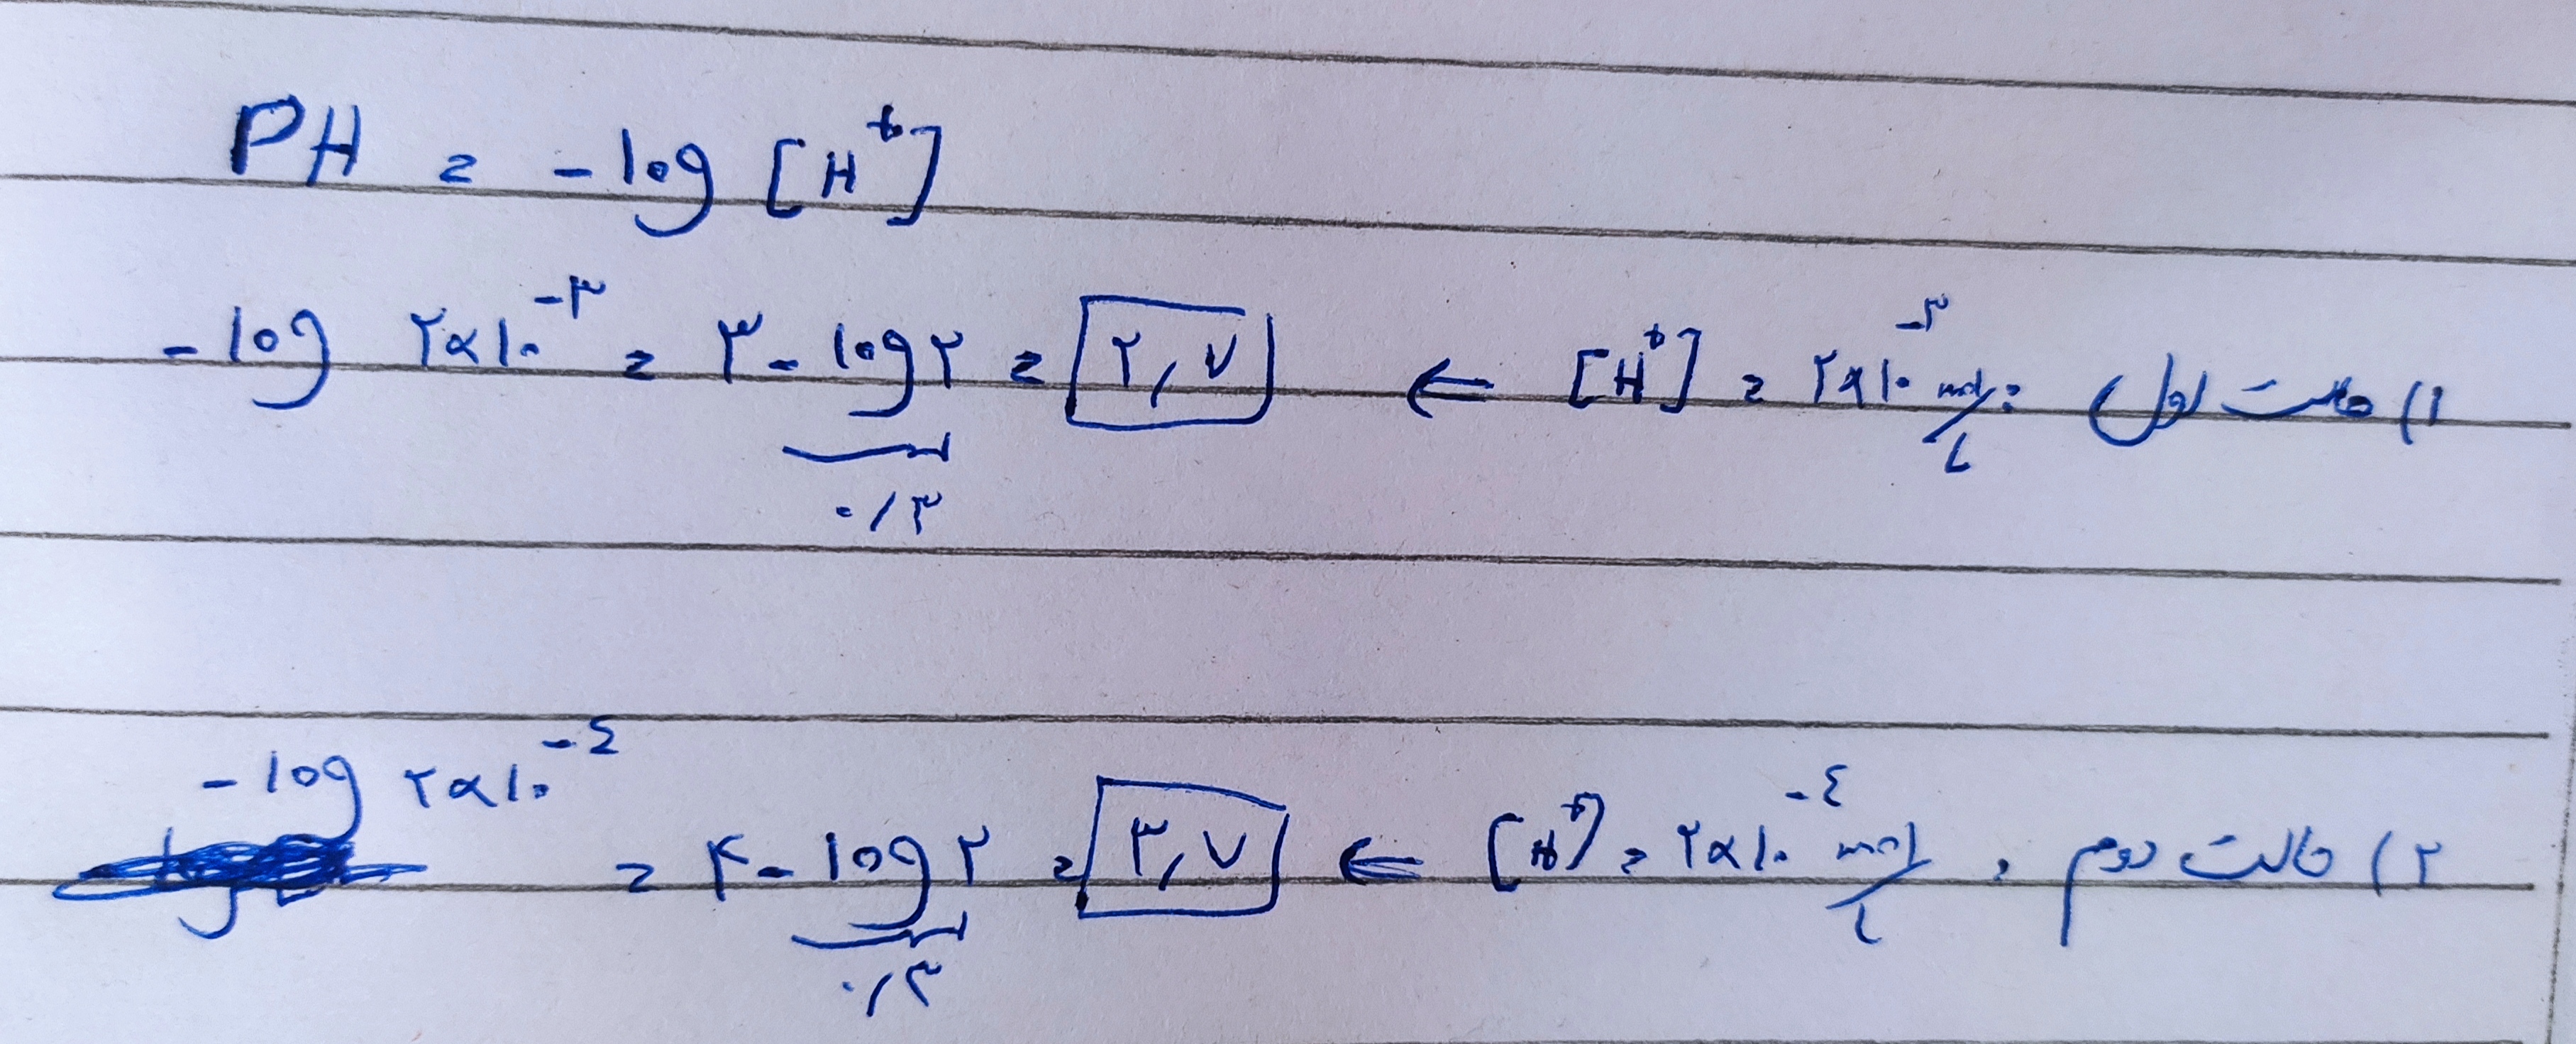 PH = -log [H⁺]
۱) حالت اول: [H⁺] = ۲×۱۰⁻³ mol/L ⇐ -log ۲×۱۰⁻³ = ۳ - log ۲ = ۲,۷
۰/۳
۲) حالت دوم: [H⁺] = ۲×۱۰⁻⁴ mol/L ⇐ -log ۲×۱۰⁻⁴ = ۴ - log ۲ = ۳,۷
۰/۳